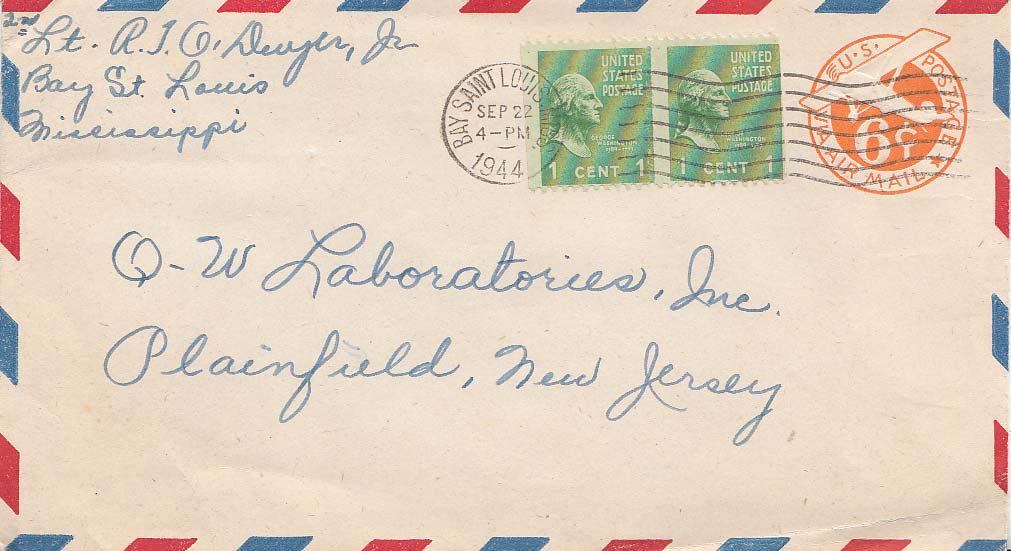 2nd
Lt. R. J. O'Dwyer, Jr
Bay St. Louis
Mississippi
BAY SAINT LOUIS
SEP 22
4-PM
1944
UNITED
STATES
POSTAGE
GEORGE
WASHINGTON
1 CENT 1
UNITED
STATES
POSTAGE
WASHINGTON
1 CENT 1
U.S. POSTAGE
6¢
VIA AIR MAIL
O-W Laboratories, Inc.
Plainfield, New Jersey